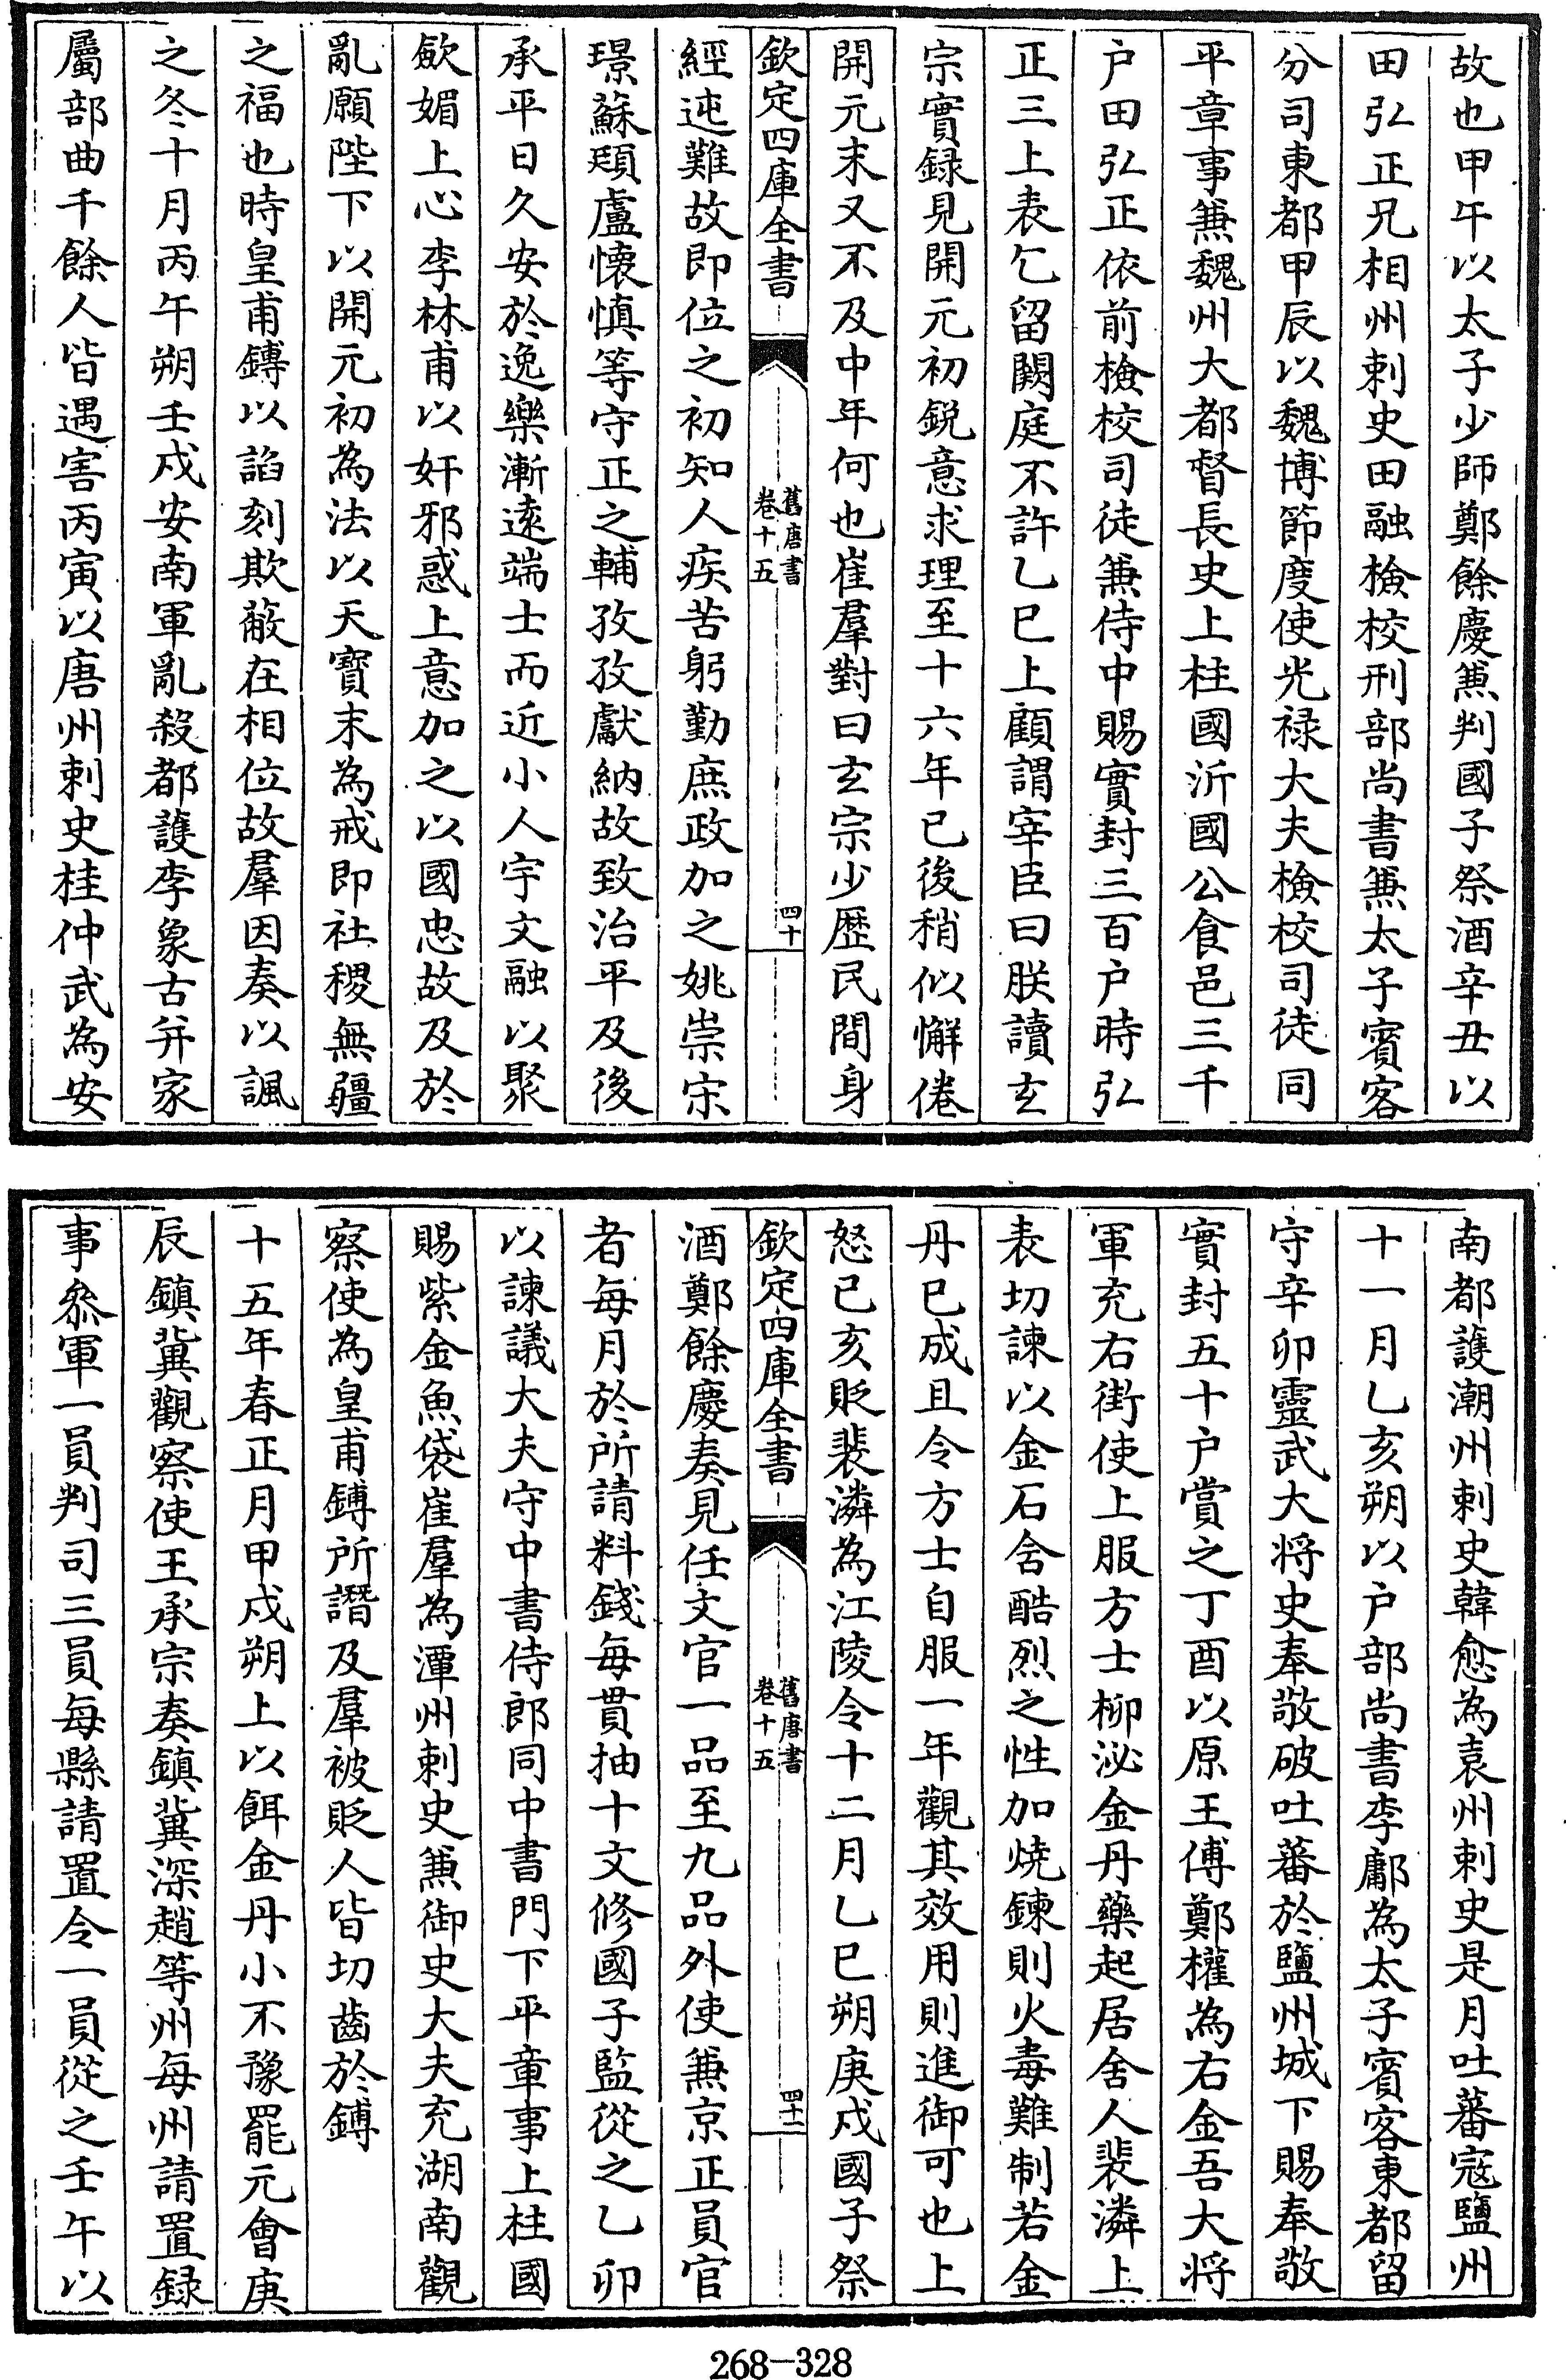 故也甲午以太子少師鄭餘慶兼判國子祭酒辛丑以
田弘正兄相州刺史田融檢校刑部尚書兼太子賓客
分司東都甲辰以魏博節度使光禄大夫檢校司徒同
平章事兼魏州大都督長史上柱國沂國公食邑三千
户田弘正依前檢校司徒兼侍中賜實封三百户時弘
正三上表乞留闕庭不許乙巳上顧謂宰臣曰朕讀玄
宗實録見開元初鋭意求理至十六年已後稍似懈倦
開元末又不及中年何也崔羣對曰玄宗少歴民間身
欽定四庫全書
舊唐書
卷十五
四十
經迍難故即位之初知人疾苦躬勤庶政加之姚崇宋
璟蘇頲盧懷慎等守正之輔孜孜獻納故致治平及後
承平日久安於逸樂漸遠端士而近小人宇文融以聚
歛媚上心李林甫以奸邪惑上意加之以國忠故及於
亂願陛下以開元初為法以天寳末為戒即社稷無疆
之福也時皇甫鎛以諂刻欺蔽在相位故羣因奏以諷
之冬十月丙午朔壬戌安南軍亂殺都護李象古并家
屬部曲千餘人皆遇害丙寅以唐州刺史桂仲武為安
南都護潮州刺史韓愈為袁州刺史是月吐蕃宼鹽州
十一月乙亥朔以户部尚書李鄘為太子賓客東都留
守辛卯靈武大将史奉敬破吐蕃於鹽州城下賜奉敬
實封五十户賞之丁酉以原王傅鄭權為右金吾大将
軍充右街使上服方士柳泌金丹藥起居舍人裴潾上
表切諫以金石含酷烈之性加燒鍊則火毒難制若金
丹已成且令方士自服一年觀其效用則進御可也上
怒已亥貶裴潾為江陵令十二月乙巳朔庚戌國子祭
欽定四庫全書
舊唐書
卷十五
四十一
酒鄭餘慶奏見任文官一品至九品外使兼京正員官
者每月於所請料錢每貫抽十文修國子監從之乙卯
以諫議大夫守中書侍郎同中書門下平章事上柱國
賜紫金魚袋崔羣為潭州刺史兼御史大夫充湖南觀
察使為皇甫鎛所譖及羣被貶人皆切齒於鎛
十五年春正月甲戌朔上以餌金丹小不豫罷元會庚
辰鎮冀觀察使王承宗奏鎮冀深趙等州每州請置録
事叅軍一員判司三員每縣請置令一員從之壬午以
268-328